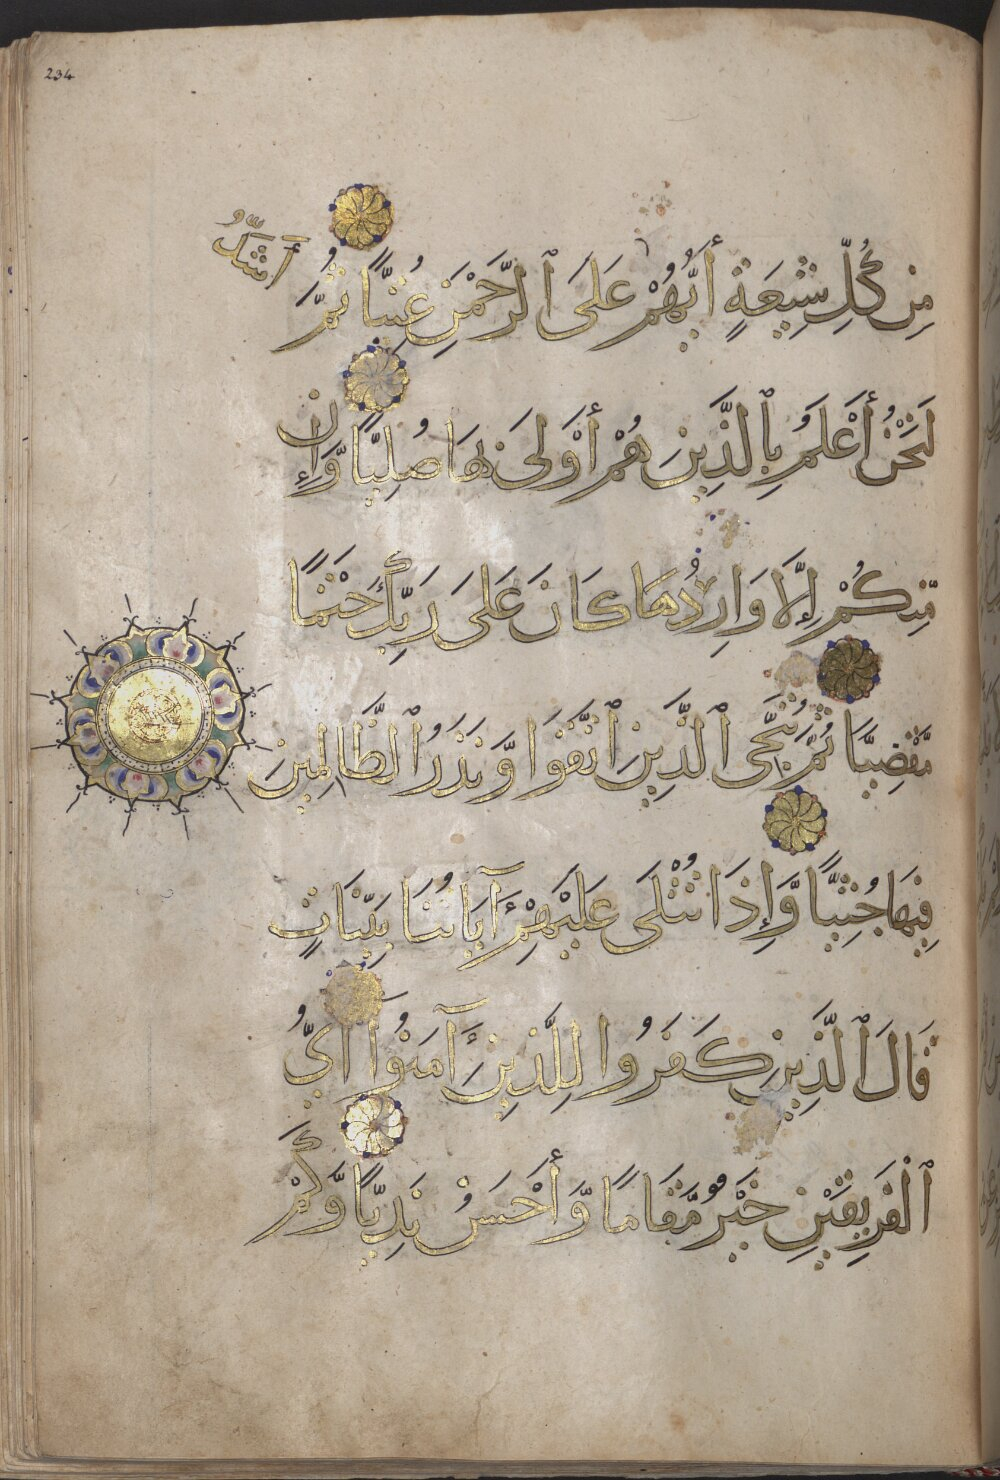 234
أَشَدُّ
مِن كُلِّ شِيعَةٍ أَيُّهُمْ عَلَى ٱلرَّحْمَنِ عُتِيًّا ثُمَّ
لَنَحْنُ أَعْلَمُ بِٱلَّذِينَ هُمْ أَوْلَى بِهَا صُلِيًّا وَّإِن
مِّنكُمْ إِلَّا وَارِدُهَا كَانَ عَلَى رَبِّكَ حَتْمًا
مَّقْضِيًّا ثُمَّ نُنَجِّي ٱلَّذِينَ ٱتَّقَوا وَّنَذَرُ ٱلظَّالِمِينَ
فِيهَا جُثِيًّا وَّإِذَا تُتْلَى عَلَيْهِمْ آيَاتُنَا بَيِّنَاتٍ
قَالَ ٱلَّذِينَ كَفَرُوا لِلَّذِينَ آمَنُوا أَيُّ
ٱلْفَرِيقَيْنِ خَيْرٌ مَّقَامًا وَّأَحْسَنُ نَدِيًّا وَّكَمْ